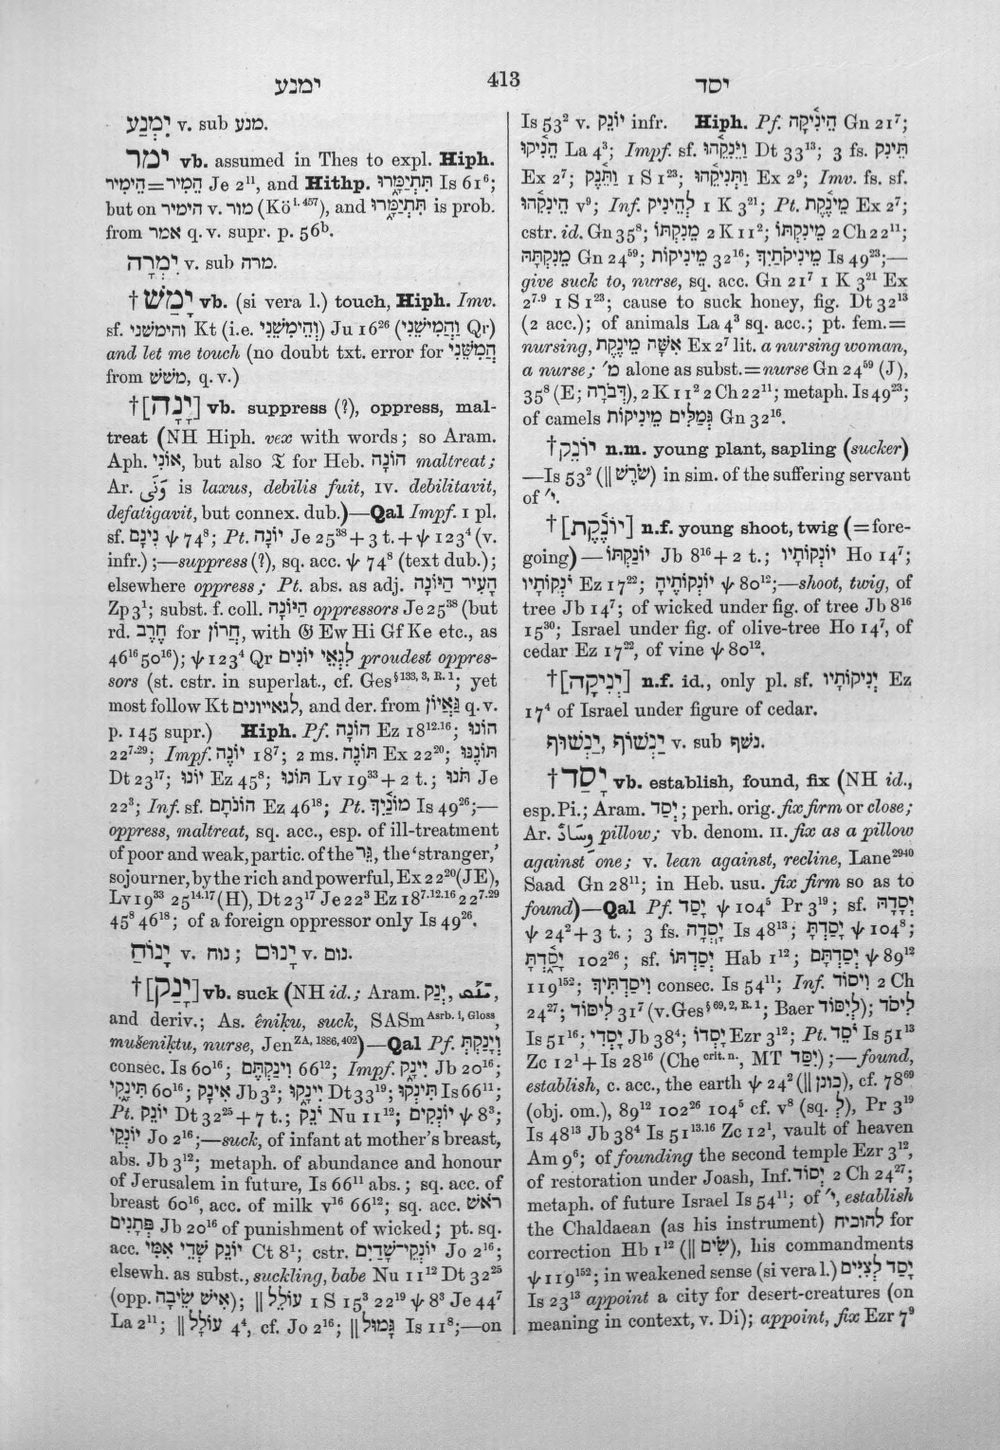 ימנע 413 יסד
יִמְנַע v. sub מנע.
ימר vb. assumed in Thes to expl. Hiph.
הֵמִיר=הֵימִיר Je 2¹¹, and Hithp. תִּתְיַמָּרוּ Is 61⁶;
but on הימיר v. מור (Kö^i. 457), and תִּתְיַמָּרוּ is prob.
from אמר q. v. supr. p. 56ᵇ.
יִמְרָה v. sub מרה.
† יָמַשׁ vb. (si vera l.) touch, Hiph. Imv.
sf. והימשני Kt (i.e. וְהֵימִשֵׁנִי) Ju 16²⁶ (וַהֲמִישֵׁנִי Qr)
and let me touch (no doubt txt. error for הֲמִשֵּׁנִי
from משש, q. v.)
† [יָנָה] vb. suppress (?), oppress, mal-
treat (NH Hiph. vex with words; so Aram.
Aph. אוֹנִי, but also 𝔗 for Heb. הוֹנָה maltreat;
Ar. وَنَى is laxus, debilis fuit, IV. debilitavit,
defatigavit, but connex. dub.)—Qal Impf. 1 pl.
sf. נִינָם ψ 74⁸; Pt. יוֹנָה Je 25³⁸ + 3 t. + ψ 123⁴ (v.
infr.);—suppress (?), sq. acc. ψ 74⁸ (text dub.);
elsewhere oppress; Pt. abs. as adj. הָעִיר הַיּוֹנָה
Zp 3¹; subst. f. coll. הַיּוֹנָה oppressors Je 25³⁸ (but
rd. חֶרֶב for חֲרוֹן, with 𝔊 Ew Hi Gf Ke etc., as
46¹⁶ 50¹⁶); ψ 123⁴ Qr לִגְאֵי יוֹנִים proudest oppres-
sors (st. cstr. in superlat., cf. Ges^§ 133, 3, R. 1; yet
most follow Kt לגאיונים, and der. from גַּאֲיוֹן q. v.
p. 145 supr.) Hiph. Pf. הוֹנָה Ez 18¹²·¹⁶; הוֹנוּ
22⁷·²⁹; Impf. יוֹנֶה 18⁷; 2 ms. תּוֹנֶה Ex 22²⁰; תּוֹנֶנּוּ
Dt 23¹⁷; יוֹנוּ Ez 45⁸; תּוֹנוּ Lv 19³³ + 2 t.; תֹּנוּ Je
22³; Inf. sf. הוֹנֹתָם Ez 46¹⁸; Pt. מוֹנַיִךְ Is 49²⁶;—
oppress, maltreat, sq. acc., esp. of ill-treatment
of poor and weak, partic. of the גֵּר, the 'stranger,'
sojourner, by the rich and powerful, Ex 22²⁰ (JE),
Lv 19³³ 25¹⁴·¹⁷ (H), Dt 23¹⁷ Je 22³ Ez 18⁷·¹²·¹⁶ 22⁷·²⁹
45⁸ 46¹⁸; of a foreign oppressor only Is 49²⁶.
יָנוֹחַ v. נוח; יָנוּם v. נום.
† [יָנַק] vb. suck (NH id.; Aram. יְנַק, ܝܺܢܶܩ,
and deriv.; As. êniḳu, suck, SASm^Asrb. i, Gloss,
mušeniḳtu, nurse, Jen^ZA, 1886, 402)—Qal Pf. וְיָנַקְתְּ
consec. Is 60¹⁶; וִינַקְתֶּם 66¹²; Impf. יִינָק Jb 20¹⁶;
תִּינָקִי 60¹⁶; אִינָק Jb 3²; יִינָקוּ Dt 33¹⁹; תִּינְקוּ Is 66¹¹;
Pt. יוֹנֵק Dt 32²⁵ + 7 t.; יֹנֵק Nu 11¹²; יוֹנְקִים ψ 8³;
יוֹנְקֵי Jo 2¹⁶;—suck, of infant at mother's breast,
abs. Jb 3¹²; metaph. of abundance and honour
of Jerusalem in future, Is 66¹¹ abs.; sq. acc. of
breast 60¹⁶, acc. of milk v¹⁶ 66¹²; sq. acc. רֹאשׁ
פְּתָנִים Jb 20¹⁶ of punishment of wicked; pt. sq.
acc. יוֹנֵק שְׁדֵי אִמִּי Ct 8¹; cstr. יוֹנְקֵי־שָׁדָיִם Jo 2¹⁶;
elsewh. as subst., suckling, babe Nu 11¹² Dt 32²⁵
(opp. אִישׁ שֵׂיבָה); ‖ עוֹלֵל 1 S 15³ 22¹⁹ ψ 8³ Je 44⁷
La 2¹¹; ‖ עוֹלָל 4⁴, cf. Jo 2¹⁶; ‖ גָּמוּל Is 11⁸;—on
Is 53² v. יוֹנֵק infr. Hiph. Pf. הֵינִיקָה Gn 21⁷;
הֵנִיקוּ La 4³; Impf. sf. וַיֵּנִקֵהוּ Dt 33¹³; 3 fs. תֵּינִק
Ex 2⁷; וַתֵּנֶק 1 S 1²³; וַתְּנִיקֵהוּ Ex 2⁹; Imv. fs. sf.
הֵינִקִהוּ v⁹; Inf. לְהֵינִיק 1 K 3²¹; Pt. מֵינֶקֶת Ex 2⁷;
cstr. id. Gn 35⁸; מֵנִקְתּוֹ 2 K 11²; מֵינִקְתּוֹ 2 Ch 22¹¹;
מֵנִקְתָּהּ Gn 24⁵⁹; מֵינִיקוֹת 32¹⁶; מֵינִיקֹתַיִךְ Is 49²³;—
give suck to, nurse, sq. acc. Gn 21⁷ 1 K 3²¹ Ex
2⁷·⁹ 1 S 1²³; cause to suck honey, fig. Dt 32¹³
(2 acc.); of animals La 4³ sq. acc.; pt. fem.=
nursing, אִשָּׁה מֵינֶקֶת Ex 2⁷ lit. a nursing woman,
a nurse; מ׳ alone as subst.=nurse Gn 24⁵⁹ (J),
35⁸ (E; דְּבֹרָה), 2 K 11² 2 Ch 22¹¹; metaph. Is 49²³;
of camels גְּמַלִּים מֵינִיקוֹת Gn 32¹⁶.
† יוֹנֵק n.m. young plant, sapling (sucker)
—Is 53² (‖ שֹׁרֶשׁ) in sim. of the suffering servant
of י׳.
† [יוֹנֶקֶת] n.f. young shoot, twig (=fore-
going)—יוֹנַקְתּוֹ Jb 8¹⁶ + 2 t.; יוֹנְקוֹתָיו Ho 14⁷;
יֹנְקוֹתָיו Ez 17²²; יוֹנְקוֹתֶיהָ ψ 80¹²;—shoot, twig, of
tree Jb 14⁷; of wicked under fig. of tree Jb 8¹⁶
15³⁰; Israel under fig. of olive-tree Ho 14⁷, of
cedar Ez 17²², of vine ψ 80¹².
† [יְנִיקָה] n.f. id., only pl. sf. יְנִיקוֹתָיו Ez
17⁴ of Israel under figure of cedar.
יַנְשׁוֹף, יַנְשׁוּף v. sub נשף.
† יָסַד vb. establish, found, fix (NH id.,
esp. Pi.; Aram. יְסַד; perh. orig. fix firm or close;
Ar. وِسَادٌ pillow; vb. denom. II. fix as a pillow
against one; V. lean against, recline, Lane²⁹⁴⁰
Saad Gn 28¹¹; in Heb. usu. fix firm so as to
found)—Qal Pf. יָסַד ψ 104⁵ Pr 3¹⁹; sf. יְסָדָהּ
ψ 24² + 3 t.; 3 fs. יָסְדָה Is 48¹³; יָסַדְתָּ ψ 104⁸;
יָסַדְתָּ 102²⁶; sf. יְסַדְתּוֹ Hab 1¹²; יְסַדְתָּם ψ 89¹²
119¹⁵²; וִיסַדְתִּיךְ consec. Is 54¹¹; Inf. וִיסוֹד 2 Ch
24²⁷; לִיסּוֹד 31⁷ (v. Ges^§ 69, 2, R. 1; Baer לִיסוֹד); לִיסֹד
Is 51¹⁶; יָסְדִי Jb 38⁴; יָסְדוֹ Ezr 3¹²; Pt. יֹסֵד Is 51¹³
Zc 12¹ + Is 28¹⁶ (Che^crit. n., MT יִסַּד);—found,
establish, c. acc., the earth ψ 24² (‖ כּוֹנֵן), cf. 78⁶⁹
(obj. om.), 89¹² 102²⁶ 104⁵ cf. v⁸ (sq. לְ), Pr 3¹⁹
Is 48¹³ Jb 38⁴ Is 51¹³·¹⁶ Zc 12¹, vault of heaven
Am 9⁶; of founding the second temple Ezr 3¹²,
of restoration under Joash, Inf. יְסוֹד 2 Ch 24²⁷;
metaph. of future Israel Is 54¹¹; of י׳, establish
the Chaldaean (as his instrument) לְהוֹכִיחַ for
correction Hb 1¹² (‖ שִׂים), his commandments
ψ 119¹⁵²; in weakened sense (si vera l.) יָסַד לְצִיִּים
Is 23¹³ appoint a city for desert-creatures (on
meaning in context, v. Di); appoint, fix Ezr 7⁹